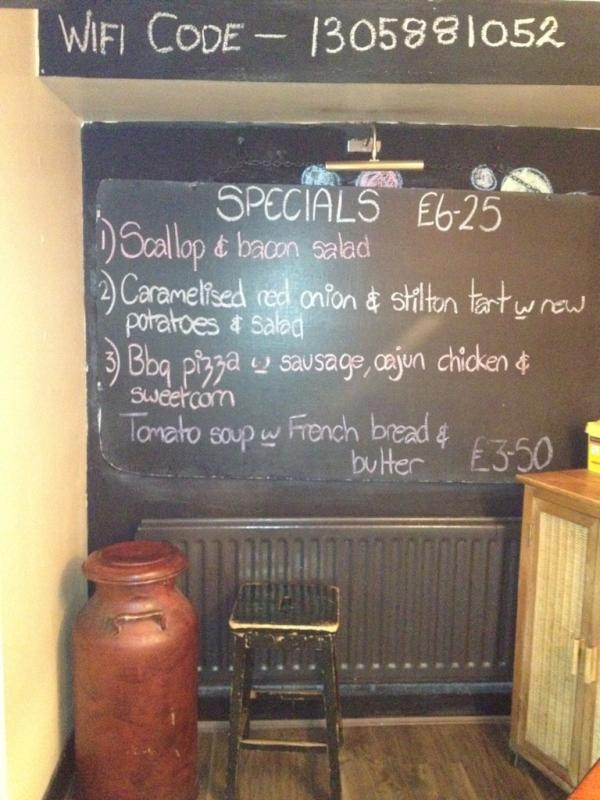 WIFI CODE — 1305881052
SPECIALS £6-25
1) Scallop & bacon salad
2) Caramelised red onion & stilton tart w new
potatoes & salad
3) Bbq pizza w sausage, cajun chicken &
sweetcorn
Tomato soup w French bread &
butter £3-50